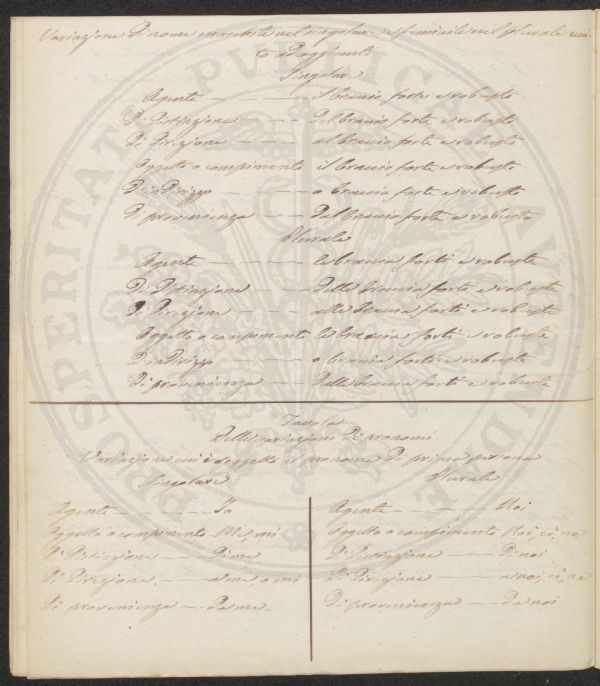 Variazione di nome maschile nel singolare e femminile nel plurale uni
to ad aggiunti
Singolare
Agente il braccio forte e robusto
Di Distinzione del braccio forte e robusto
Di Direzione al braccio forte e robusto
Oggetto o compimento il braccio forte e robusto
D'indirizzo o braccio forte e robusto
Di provenienza dal braccio forte e robusto
Plurale
Agente le braccia forti e robuste
Di Distinzione delle braccia forti e robuste
Di Direzione alle braccia forti e robuste
Oggetto o compimento le braccia forti e robuste
D'indirizzo o braccia forti e robuste
Di provenienza dalle braccia forti e robuste
Tavola
Delle variazioni di pronomi
Variazione cui è soggetto il pronome di prima persona
Singolare
Agente Io
Oggetto o compimento Me, mi
Di Distinzione Di me
Di Direzione a me o mi
Di provenienza Da me.
Plurale
Agente Noi
Oggetto o compimento Noi, ci, ne
Di Distinzione Di noi
Di Direzione a noi, ci, ne
Di provenienza Da noi
PROSPERITATI PUBLICAE AUGENDAE